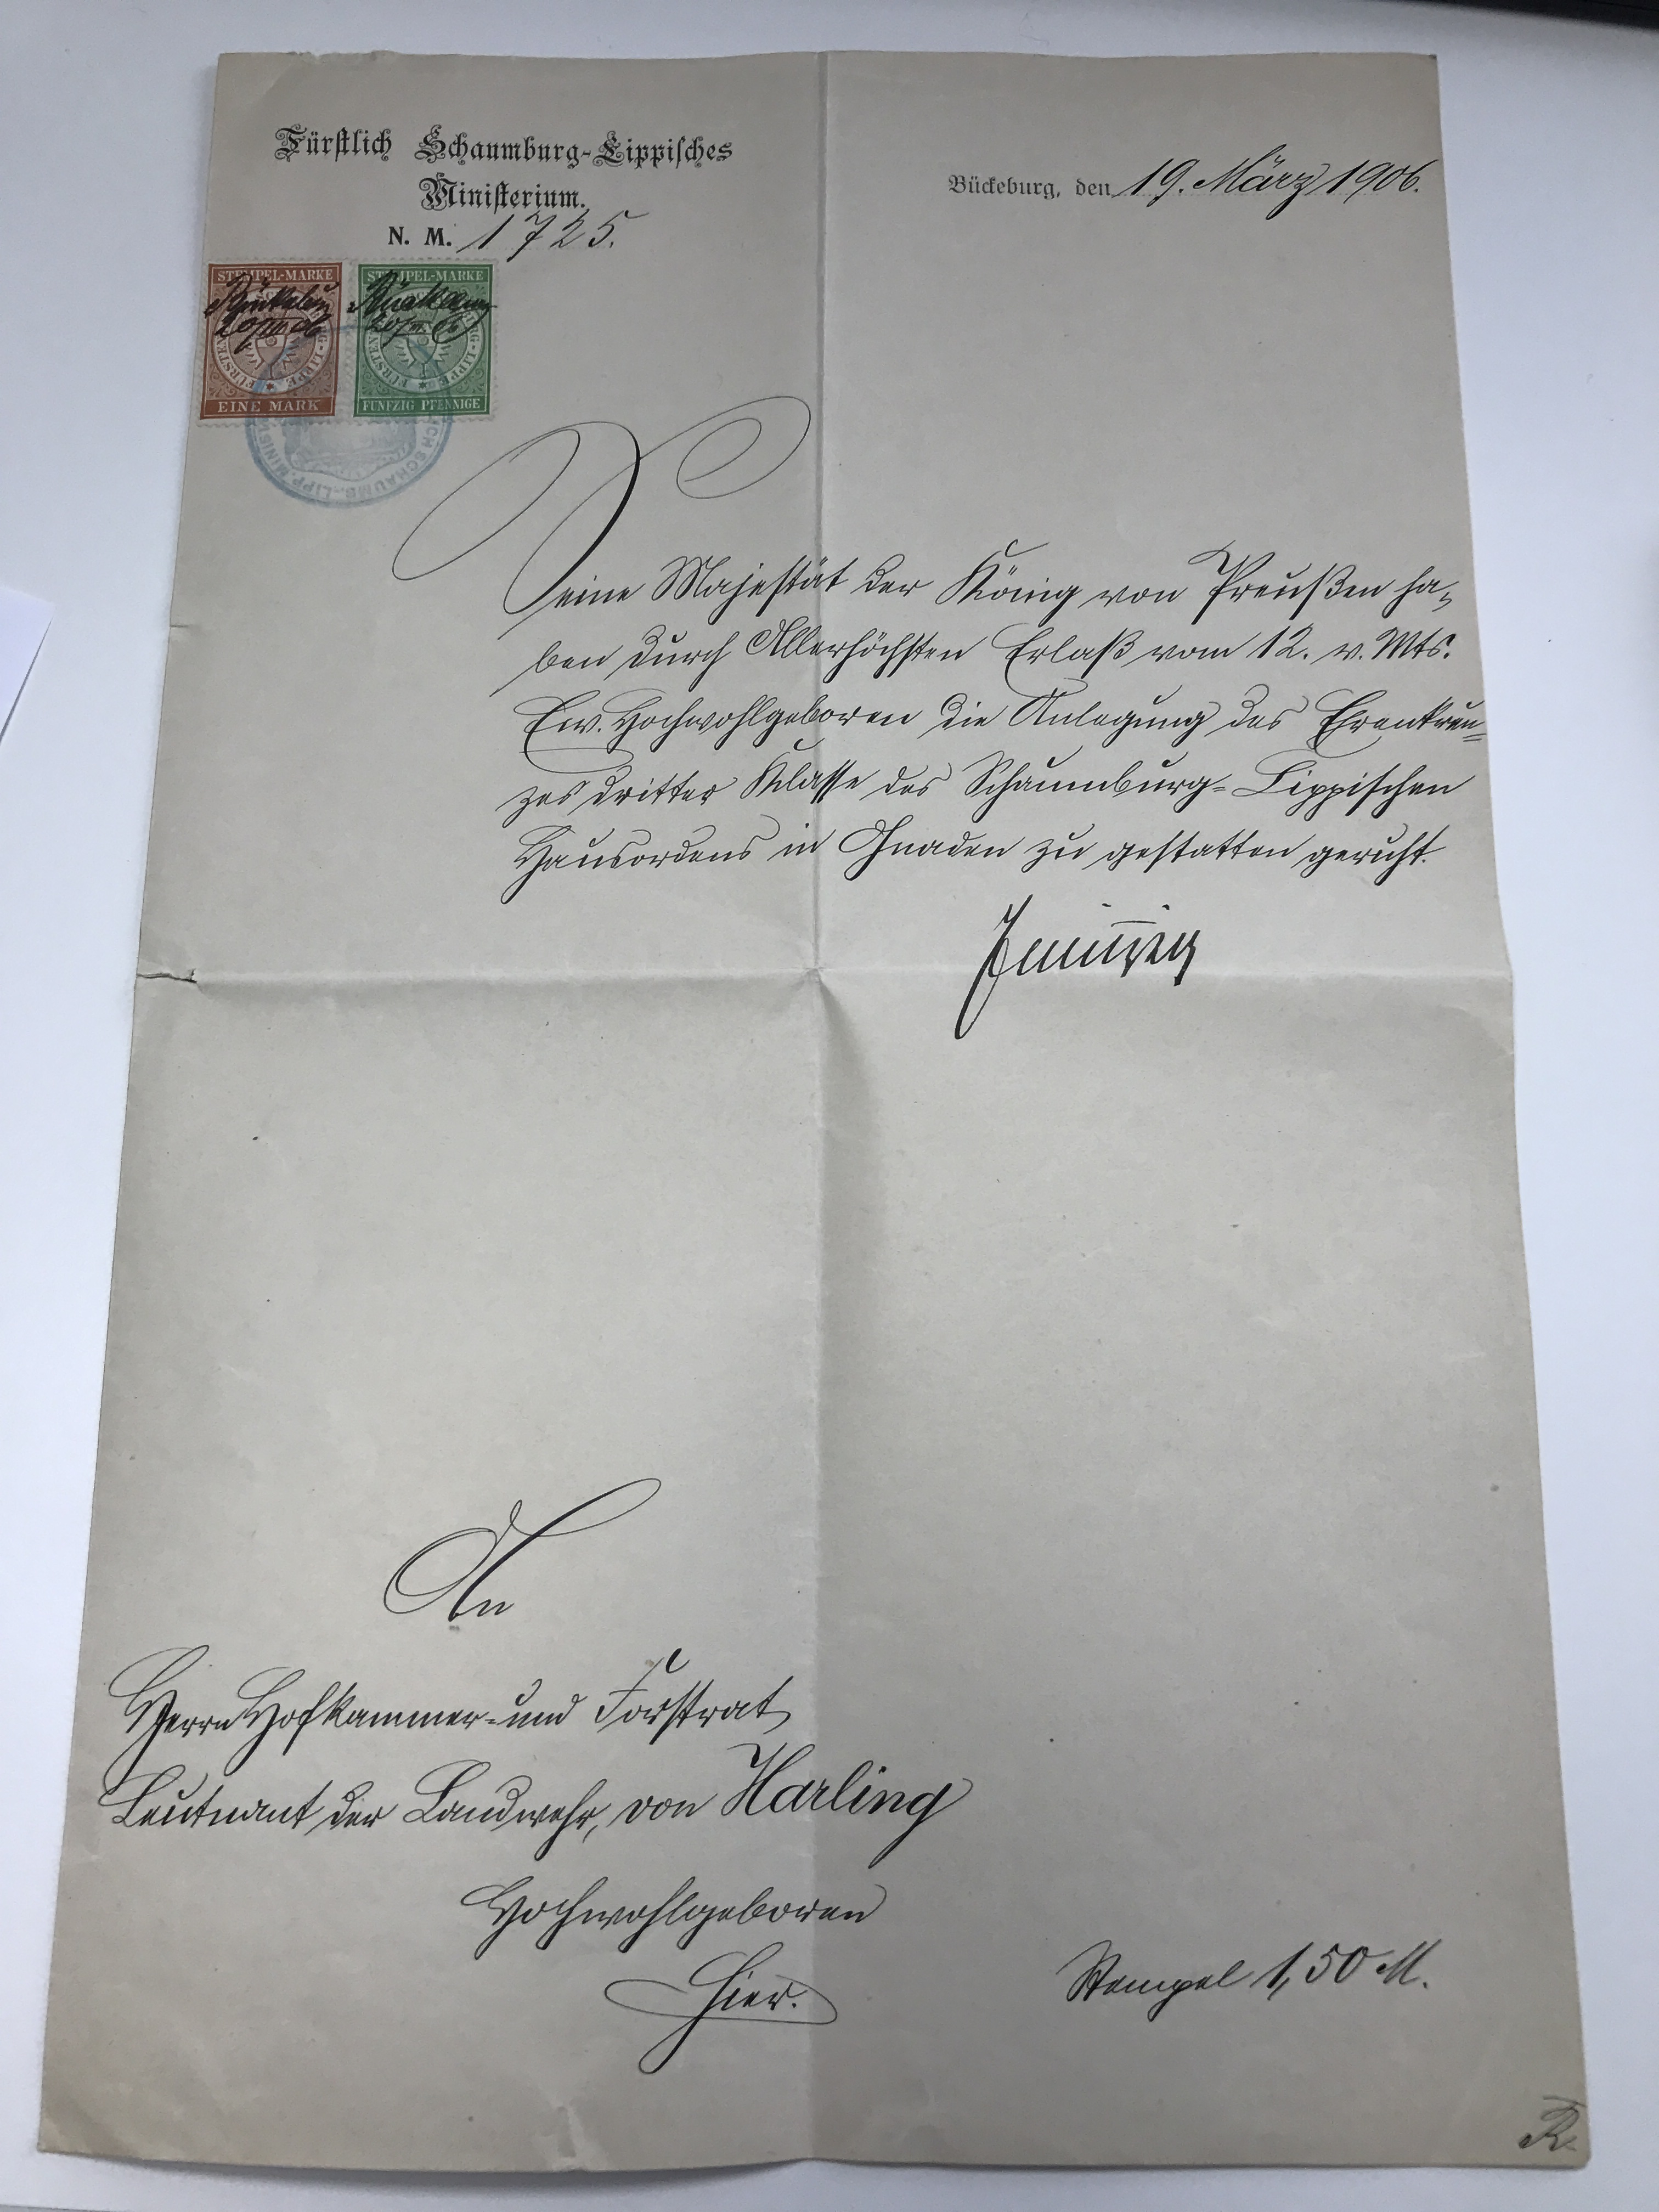 Fürstlich Schaumburg-Lippisches
Ministerium.
N. M. 1725.
Bückeburg, den 19. März 1906.
STEMPEL-MARKE
EINE MARK
STEMPEL-MARKE
FÜNFZIG PFENNIGE
Seine Majestät der König von Preußen ha-
ben durch Allerhöchsten Erlaß vom 12. v. Mts.
Ew. Hochwohlgeboren die Anlegung des Ehrenkreu-
zes dritter Klasse des Schaumburg-Lippischen
Hausordens in Gnaden zu gestatten geruht.
An
Herrn Hofkammer- und Forstrat,
Leutnant der Landwehr, von Harling
Hochwohlgeboren
Hier.
Stempel 1,50 M.